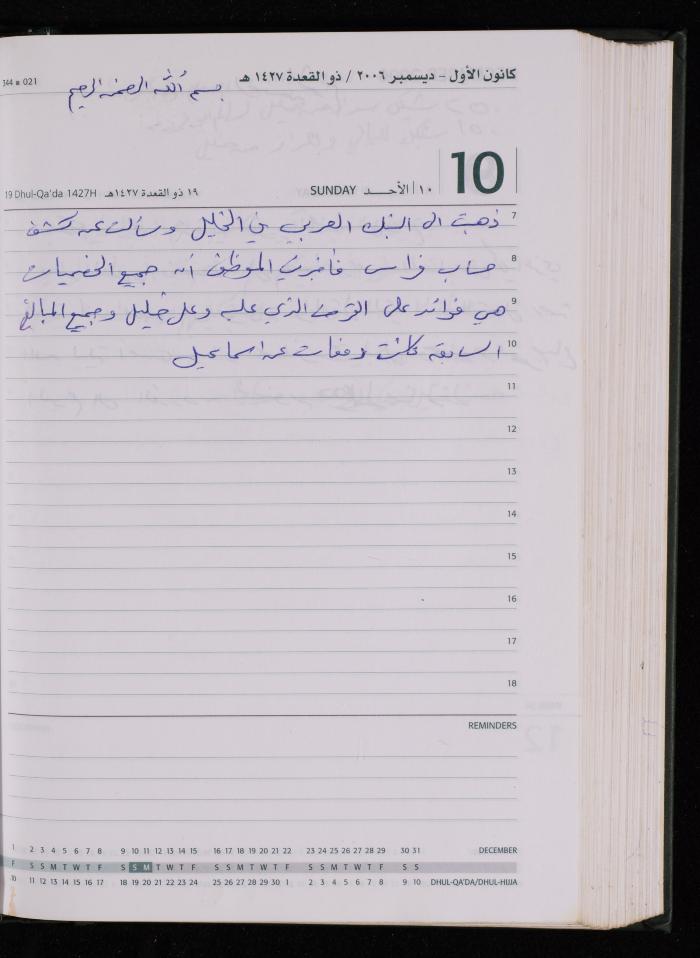 344 ■ 021
كانون الأول - ديسمبر ٢٠٠٦ / ذو القعدة ١٤٢٧ هـ
بسم الله الرحمن الرحيم
10
19 Dhul-Qa'da 1427H ١٩ ذو القعدة ١٤٢٧هـ SUNDAY الأحــد ١٠
7 ذهبت الى البنك العربي في الخليل وسألت عن كشف
8 حساب فراس فأخبرني الموظف أن جميع الخصميات
9 هي فوائد على القرض الذي عليه وعلى خليل وجميع المبالغ
10 السابقة كانت دفعات عن اسماعيل
11
12
13
14
15
16
17
18
REMINDERS
1 2 3 4 5 6 7 8 9 10 11 12 13 14 15 16 17 18 19 20 21 22 23 24 25 26 27 28 29 30 31 DECEMBER
F S S M T W T F S S M T W T F S S M T W T F S S M T W T F S S
10 11 12 13 14 15 16 17 18 19 20 21 22 23 24 25 26 27 28 29 30 1 2 3 4 5 6 7 8 9 10 DHUL-QA'DA/DHUL-HIJJA